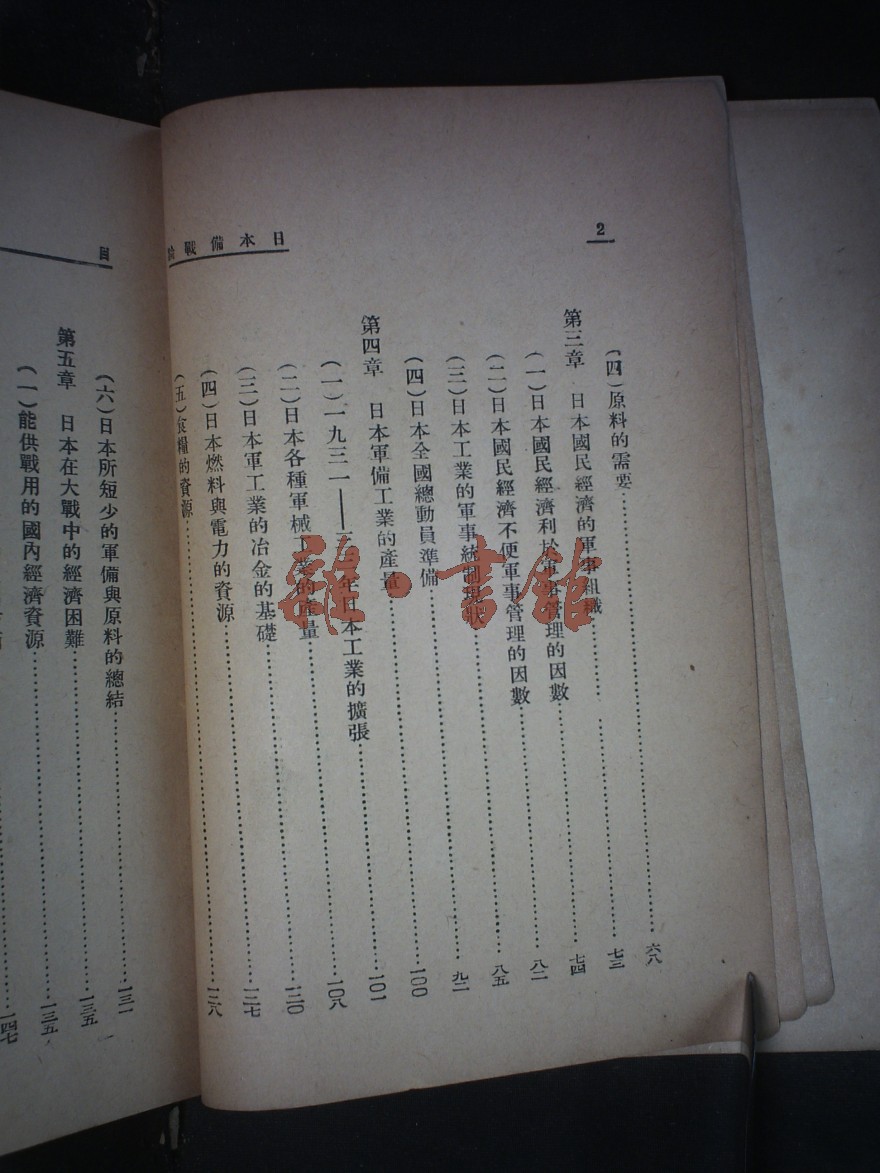 2
日本備戰
(四)原料的需要……六八
第三章 日本國民經濟的軍事組織……七三
(一)日本國民經濟利於軍事管理的因數……七四
(二)日本國民經濟不便軍事管理的因數……八二
(三)日本工業的軍事統制現狀……八五
(四)日本全國總動員準備……九二
第四章 日本軍備工業的產量……一〇〇
(一)一九三一——三年日本工業的擴張……一〇一
(二)日本各種軍械工業的產量……一〇八
(三)日本軍工業的冶金的基礎……一二〇
(四)日本燃料與電力的資源……一二七
(五)食糧的資源……一二八
目
(六)日本所短少的軍備與原料的總結……一三一
第五章 日本在大戰中的經濟困難……一三五
(一)能供戰用的國內經濟資源……一三五
一四七
雜·書館